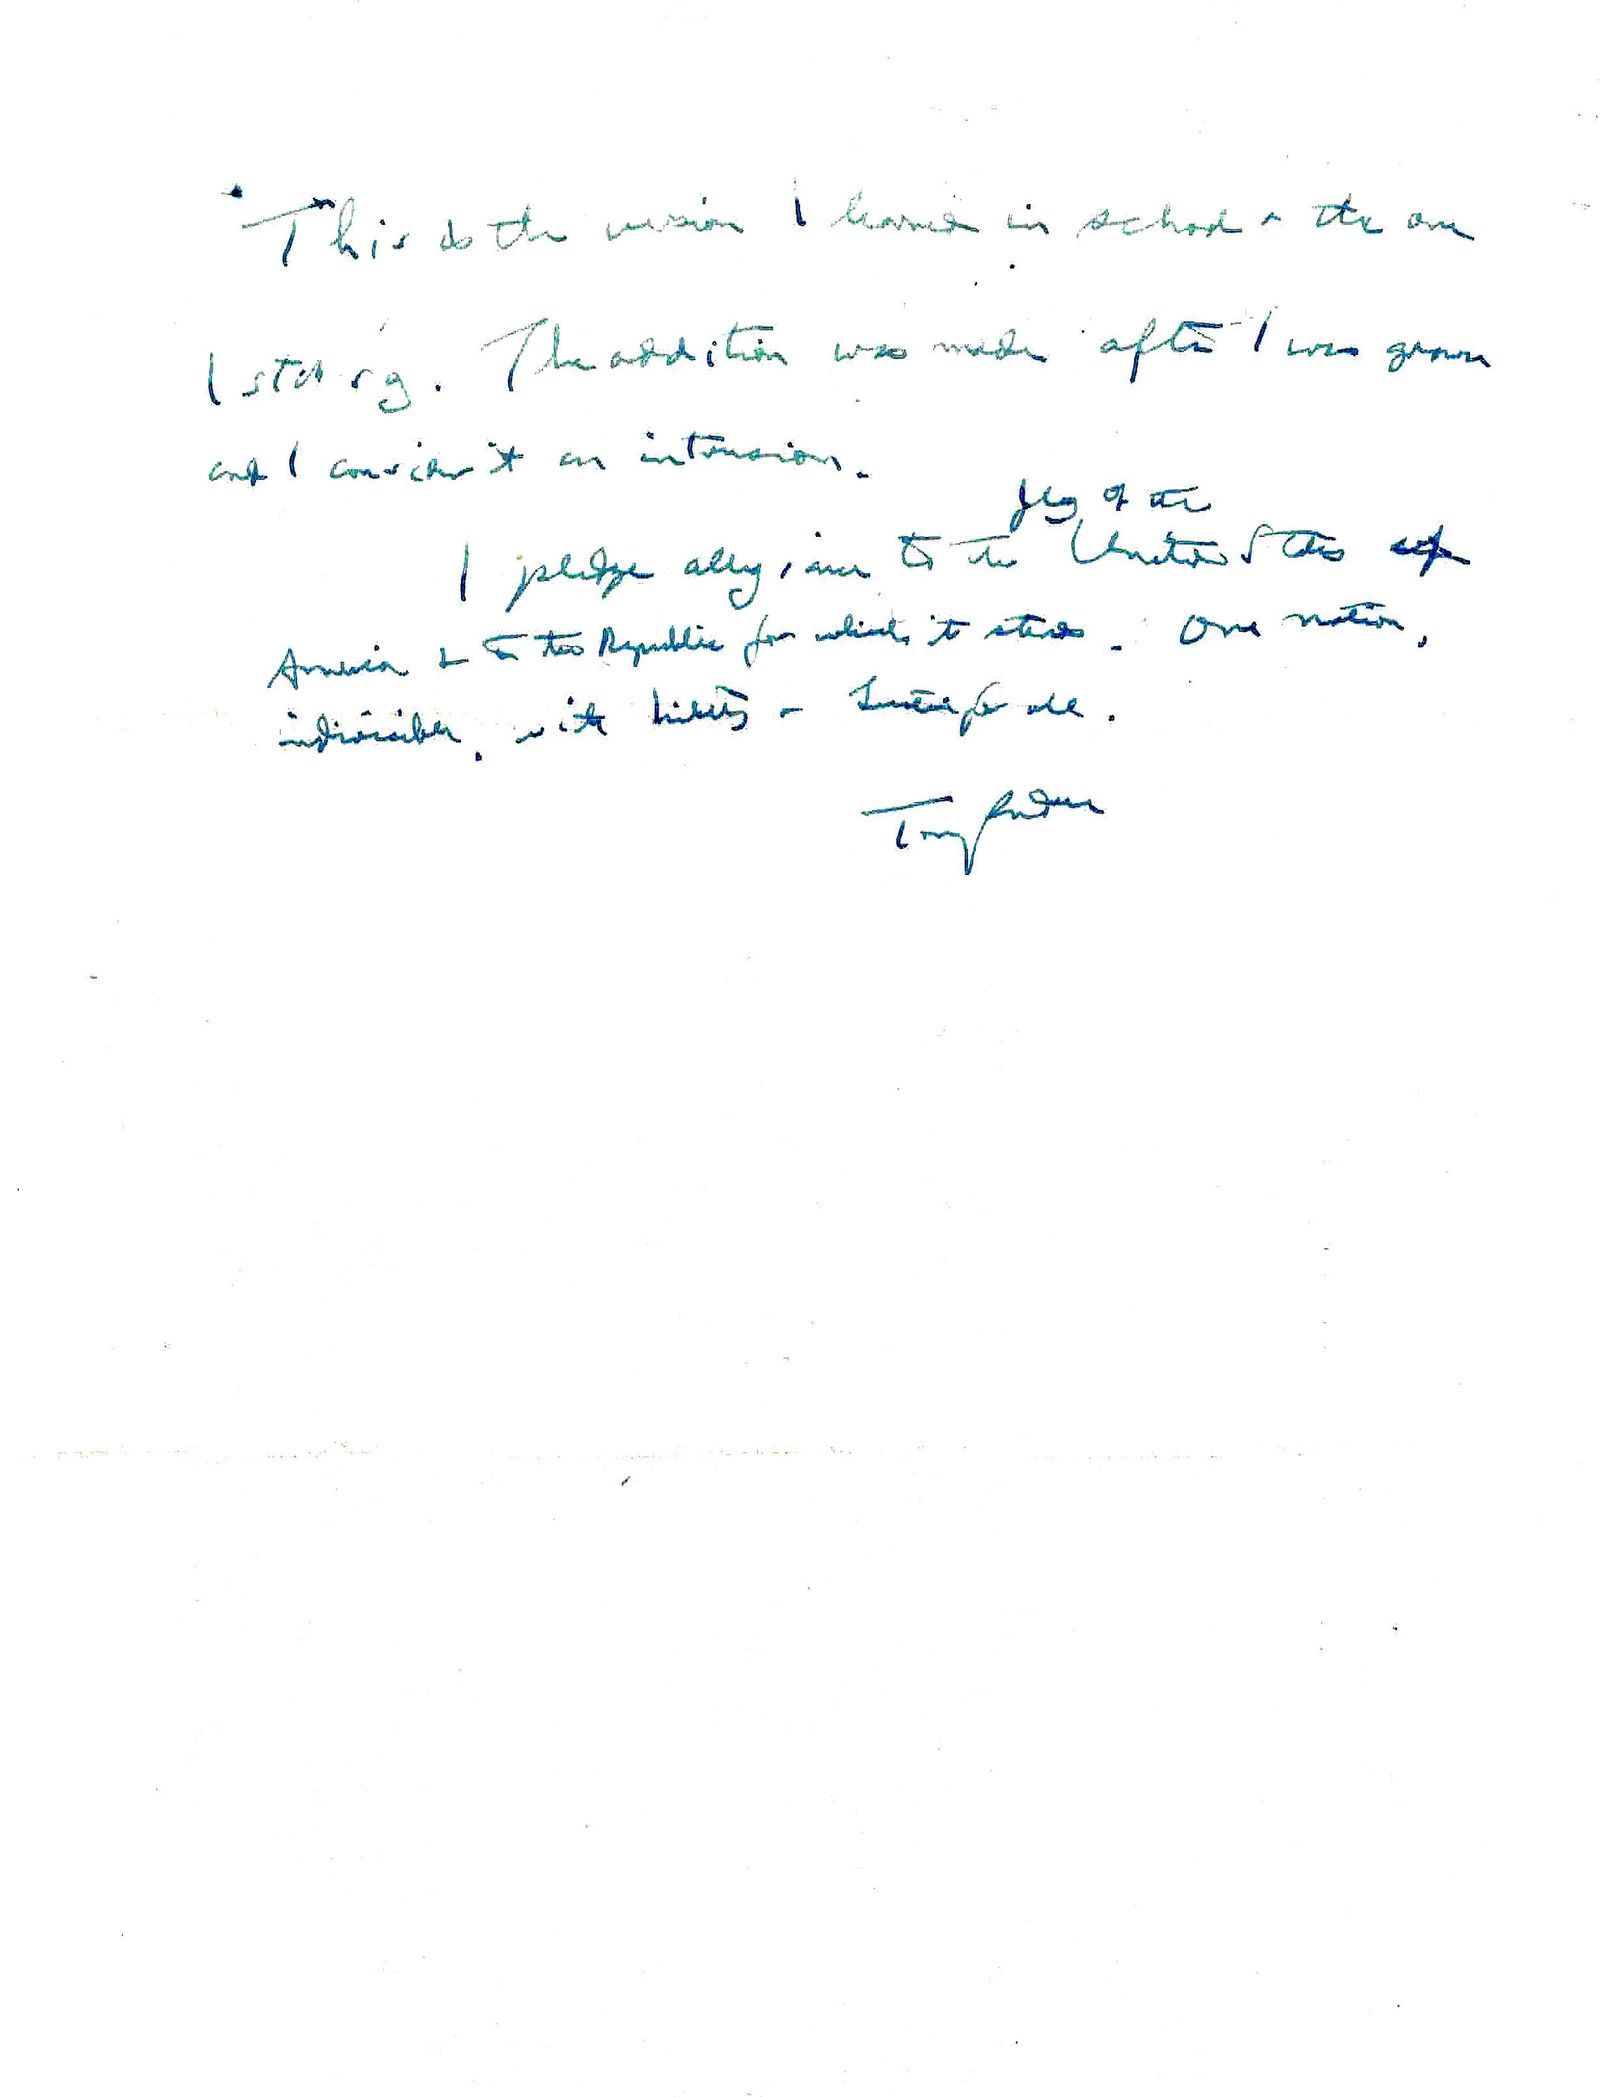 This is the version I learned in school & the one
I still say. The addition was made after I was grown
and I consider it an intrusion.
flag of the
I pledge allegiance to the United States of
America & to the Republic for which it stands. One nation,
indivisible, with liberty & Justice for all.
Tony